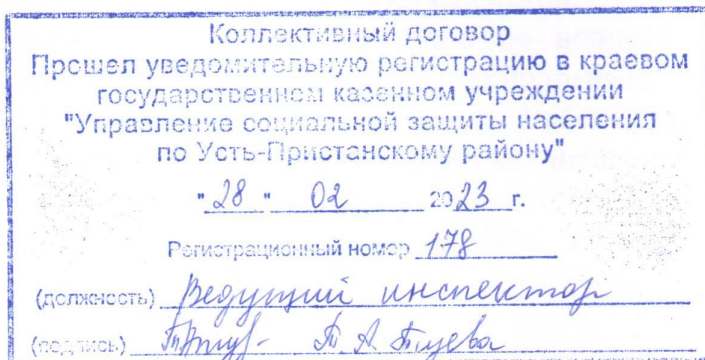 Коллективный договор
Прошел уведомительную регистрацию в краевом
государственном казенном учреждении
"Управление социальной защиты населения
по Усть-Пристанскому району"
"28" 02 2023 г.
Регистрационный номер 178
(должность) Ведущий инспектор
(подпись) Т. А.